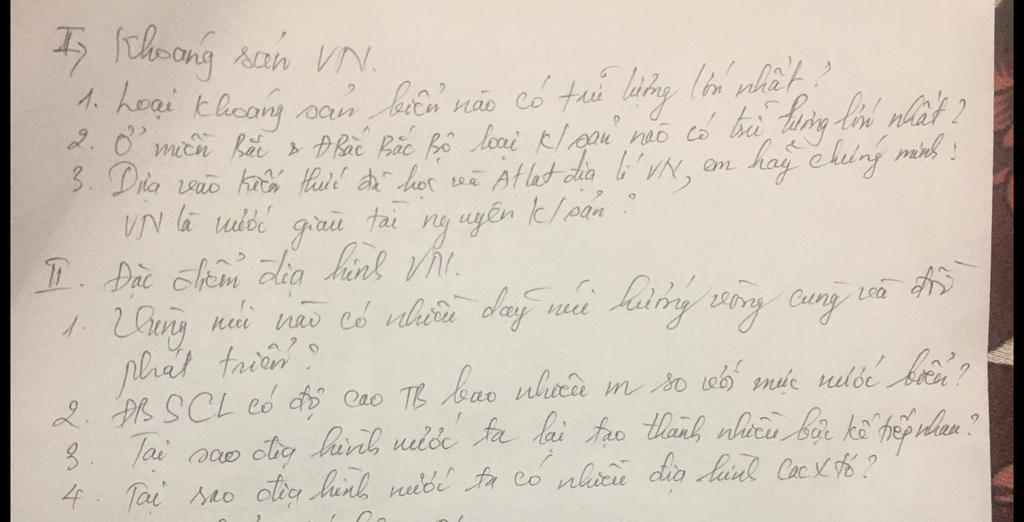 I, Khoáng sản VN.
1. Loại khoáng sản biển nào có trữ lượng lớn nhất?
2. Ở miền Bắc & ĐBắc Bắc Bộ loại k/sản nào có trữ lượng lớn nhất?
3. Dựa vào kiến thức đã học và Atlat địa lí VN, em hãy chứng minh:
VN là nước giàu tài nguyên k/sản?
II. Đặc điểm địa hình VN.
1. Vùng núi nào có nhiều dãy núi hướng vòng cung và đồi
phát triển?
2. ĐBSCL có độ cao TB bao nhiêu m so với mực nước biển?
3. Tại sao địa hình nước ta lại tạo thành nhiều bậc kế tiếp nhau?
4. Tại sao địa hình nước ta có nhiều địa hình Cacxtơ?